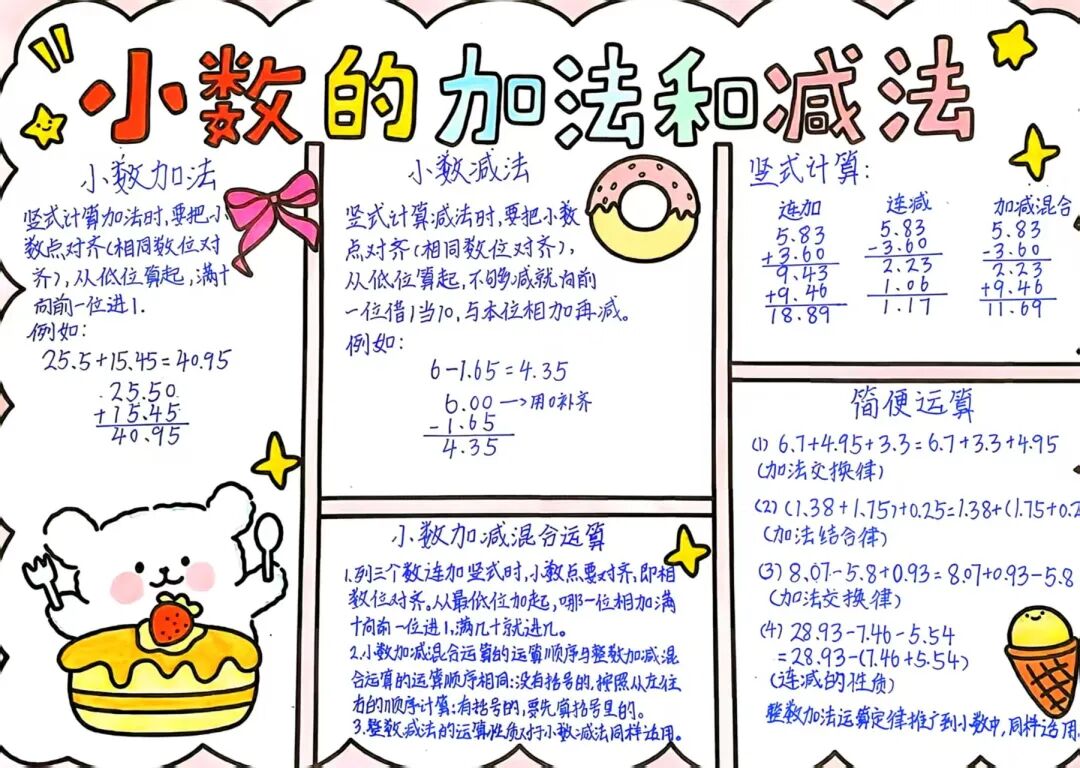 小数的加法和减法
小数加法
竖式计算加法时,要把小
数点对齐(相同数位对
齐),从低位算起,满十
向前一位进1.
例如:
25.5+15.45=40.95
25.50
+15.45
40.95
小数减法
竖式计算减法时,要把小数
点对齐(相同数位对齐),
从低位算起,不够减就向前
一位借1当10,与本位相加再减。
例如:
6-1.65=4.35
6.00→用0补齐
-1.65
4.35
小数加减混合运算
1.列三个数连加竖式时,小数点要对齐,即相
数位对齐。从最低位加起,哪一位相加满
十向前一位进1,满几十就进几。
2.小数加减混合运算的运算顺序与整数加减混
合运算的运算顺序相同:没有括号的,按照从左往
右的顺序计算;有括号的,要先算括号里的。
3.整数减法的运算性质对于小数减法同样适用。
竖式计算:
连加
5.83
+3.60
9.43
+9.46
18.89
连减
5.83
-3.60
2.23
1.06
1.17
加减混合
5.83
-3.60
2.23
+9.46
11.69
简便运算
(1) 6.7+4.95+3.3=6.7+3.3+4.95
(加法交换律)
(2) (1.38+1.75)+0.25=1.38+(1.75+0.2
(加法结合律)
(3) 8.07-5.8+0.93=8.07+0.93-5.8
(加法交换律)
(4) 28.93-7.46-5.54
=28.93-(7.46+5.54)
(连减的性质)
整数加法运算定律推广到小数中,同样适用